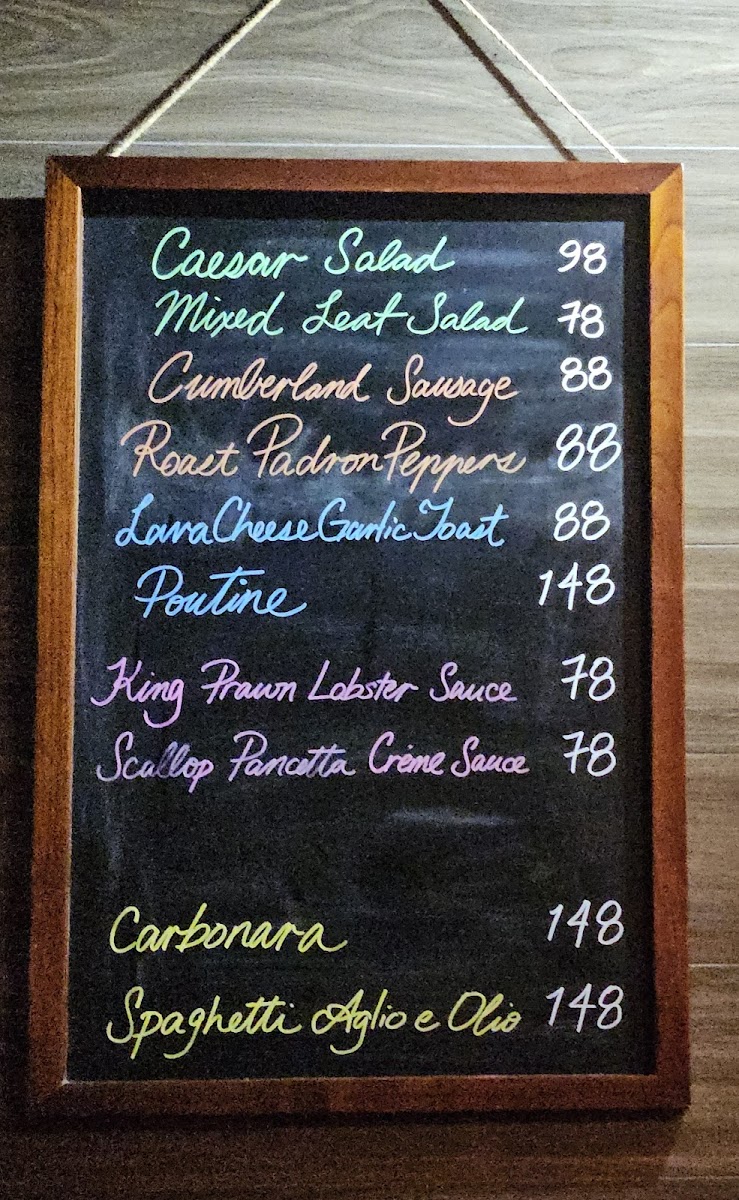 Caesar Salad 98
Mixed Leaf Salad 78
Cumberland Sausage 88
Roast Padron Peppers 88
Lava Cheese Garlic Toast 88
Poutine 148
King Prawn Lobster Sauce 78
Scallop Pancetta Crème Sauce 78
Carbonara 148
Spaghetti Aglio e Olio 148